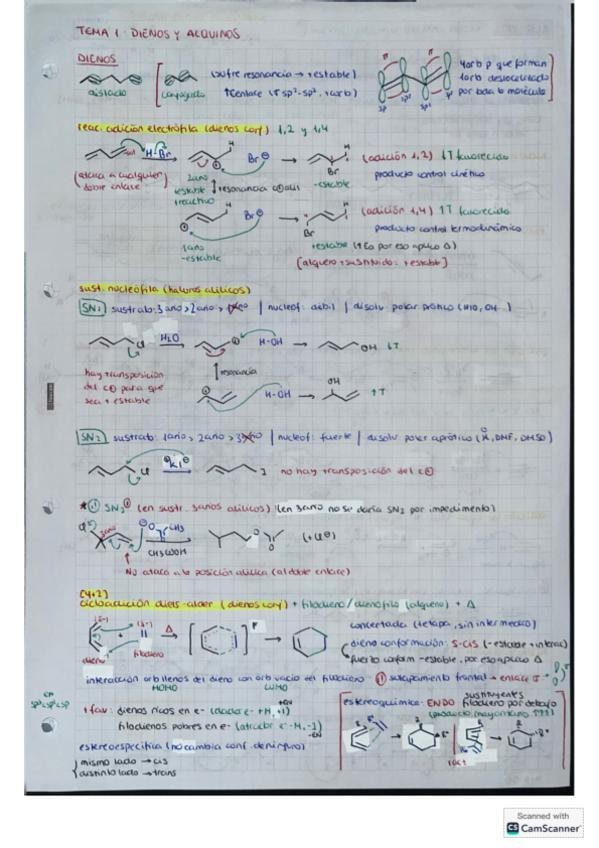 TEMA 1: DIENOS Y ALQUINOS
DIENOS
aislado
conjugado
(sufre resonancia → +estable)
↑Eenlace (σ sp²-sp², +corb)
4orb p que forman
1orb deslocalizado
por toda la molécula
sp² sp² sp² sp²
reac. adición electrófila (dienos conj) 1,2 y 1,4
H-Br
Br⊖
(adición 1,2) ↓T favorecido
producto control cinético
(ataca a cualquier
doble enlace)
2ario
+estable
+reactivo
↕resonancia
-estable
Br⊖
(adición 1,4) ↑T favorecido
producto control termodinámico
1ario
-estable
Br
+estable (↑Ea por eso aplico Δ)
[alqueno +sustituido: +estable]
sust. nucleófila (haluros alílicos)
SN1 sustrato: 3ario > 2ario > 1ario | nucleof: débil | disolv. polar prótico (H2O, OH..)
Cl
H2O
H-OH
OH ↓T
hay transposición
del C⊕ para que
sea + estable
↕resonancia
H-OH
OH
↑T
SN2 sustrato: 1ario > 2ario > 3ario | nucleof: fuerte | disolv polar aprótico (DMF, DMSO)
Cl
K I
I
no hay transposición del C⊕
SN2 (en sustr. 3arios alílicos) (en 3ario no se daría SN2 por impedimento)
Cl
3ario
CH3
CH3COOH
(+Cl⊖)
No ataca a la posición alílica (al doble enlace)
[4+2]
cicloadición diels-alder (dienos conj) + filodieno/dienófilo (alqueno) + Δ
dieno
filodieno
Δ
concertada (1etapa, sin intermedio)
dieno conformación: S-CIS (-estable +interac)
fuerzo conform -estable, por eso aplico Δ
interacción orb llenos del dieno con orb vacío del filodieno
HOMO
LUMO
solapamiento frontal → enlace σ
+fav: dienos ricos en e-
filodienos pobres en e-
estereoquímica: ENDO
sustituyentes
filodieno por debajo
(producto mayoritario)
estereoespecífica (no cambia conf. de ninguno)
mismo lado → cis
distinto lado → trans
Scanned with
CS CamScanner